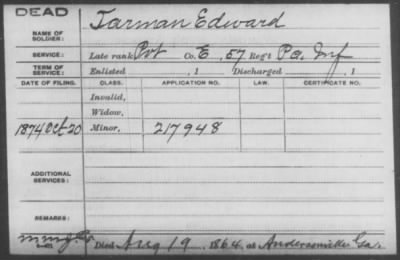 DEAD
NAME OF SOLDIER: Tarman Edward
SERVICE: Late rank Pvt Co. E, 57 Reg't Pa. Inf
TERM OF SERVICE: Enlisted , 1 Discharged , 1
DATE OF FILING. CLASS. APPLICATION NO. LAW. CERTIFICATE NO.
Invalid,
Widow,
1874 Oct 20 Minor, 217948
ADDITIONAL SERVICES:
REMARKS:
Died Aug 19 1864, at Andersonville Ga.